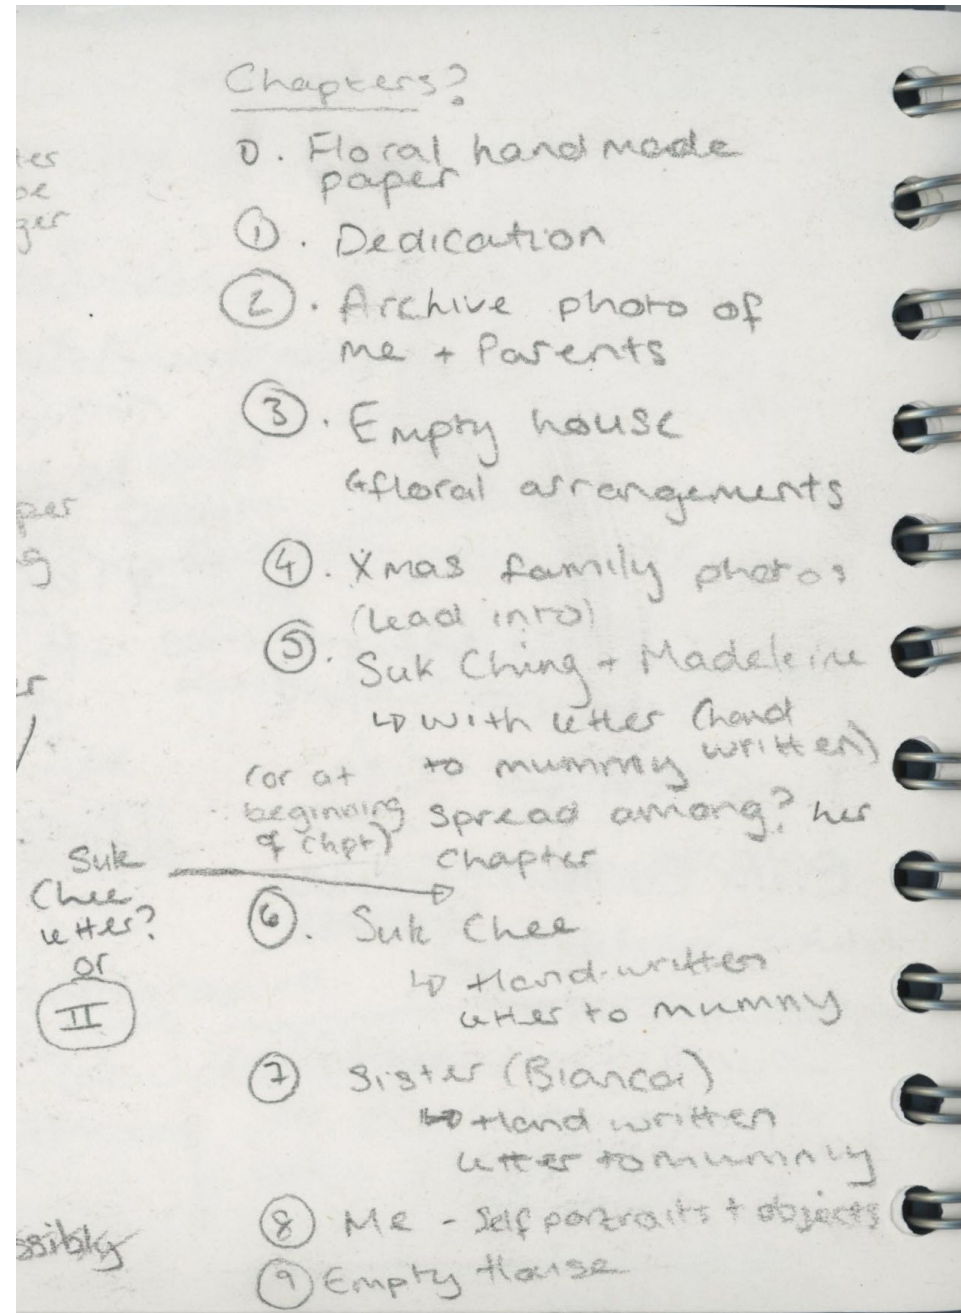 Chapters?
0. Floral handmade
paper
① . Dedication
② . Archive photo of
me + Parents
③ . Empty house
↳floral arrangements
④ . Xmas family photos
(lead into)
⑤ . Suk Ching + Madeleine
↳ with letter (hand
to mummy written)
(or at
beginning
of chpt)
spread among? her
chapter
Suk
Chee
letter?
or
II
⑥ . Suk Chee
↳ Hand-written
letter to mummy
⑦ Sister (Bianca)
↳ Hand written
letter to mummy
⑧ Me - Self portraits + objects
⑨ Empty House
per
ssibly